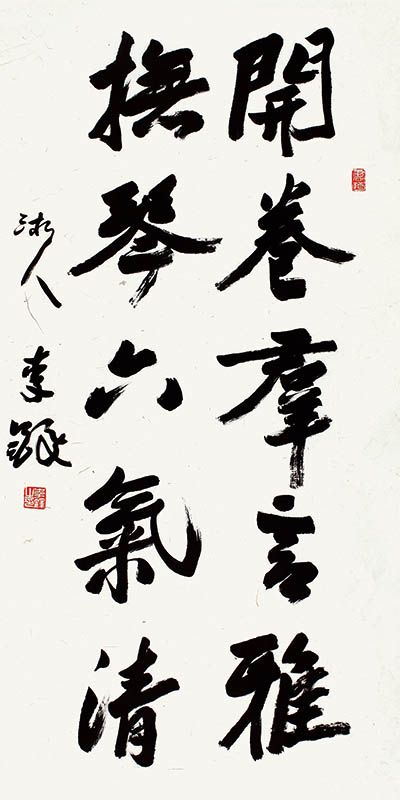 開卷羣言雅
撫琴六氣清
湘人李鐸